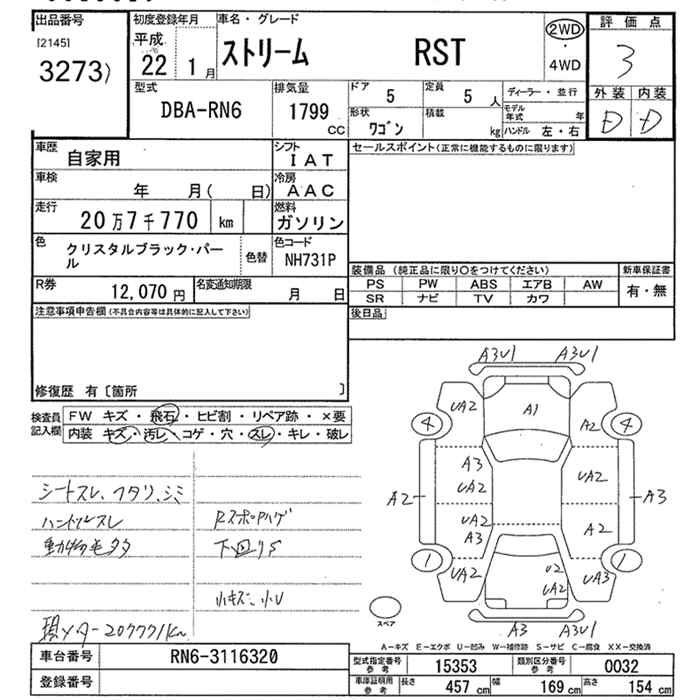 出品番号
[2145]
3273)
初度登録年月
平成
22 1月
車名・グレード
ストリーム RST
2WD
・
4WD
評価点
3
外装 内装
D D
型式
DBA-RN6
排気量
1799
CC
ドア
5
定員
5 人
形状
ワゴン
積載
kg
ディーラー・並行
モデル年式 年
ハンドル 左・右
車歴
自家用
シフト
IAT
車検
年 月( 日)
冷房
AAC
走行
20万7千770 km
燃料
ガソリン
色
クリスタルブラック・パール
色替
色コード
NH731P
R券
12,070 円
名変通知期限
月 日
セールスポイント(正常に機能するものに限ります)
装備品 (純正品に限り○をつけてください)
PS PW ABS エアB AW
SR ナビ TV カワ
新車保証書
有・無
後日品
注意事項申告欄(不具合内容等は具体的に記入して下さい)
修復歴 有〔箇所 〕
検査員記入欄
FW キズ・飛石・ヒビ割・リペア跡・×要
内装 キズ・汚レ・コゲ・穴・スレ・キレ・破レ
シートスレ、ヘタリ、シミ
ハンドルスレ
動物毛多
現メーター207771km
Rスポイラハゲ
下回りS
小キズ、小U
A3U1 A3U1
UA2 A1 A2
4 4
A3 UA2 UA2
A2 A3
UA2 A3 A2
1 1
UA2 U2 UA2 UA3
A3 A3U1
スペア
A-キズ E-エクボ U-凹み W-補修跡 S-サビ C-腐食 XX-交換済
車台番号
RN6-3116320
登録番号
型式指定番号
参考
15353
類別区分番号
参考
0032
車庫証明用
参考
長さ 457 cm 幅 169 cm 高さ 154 cm